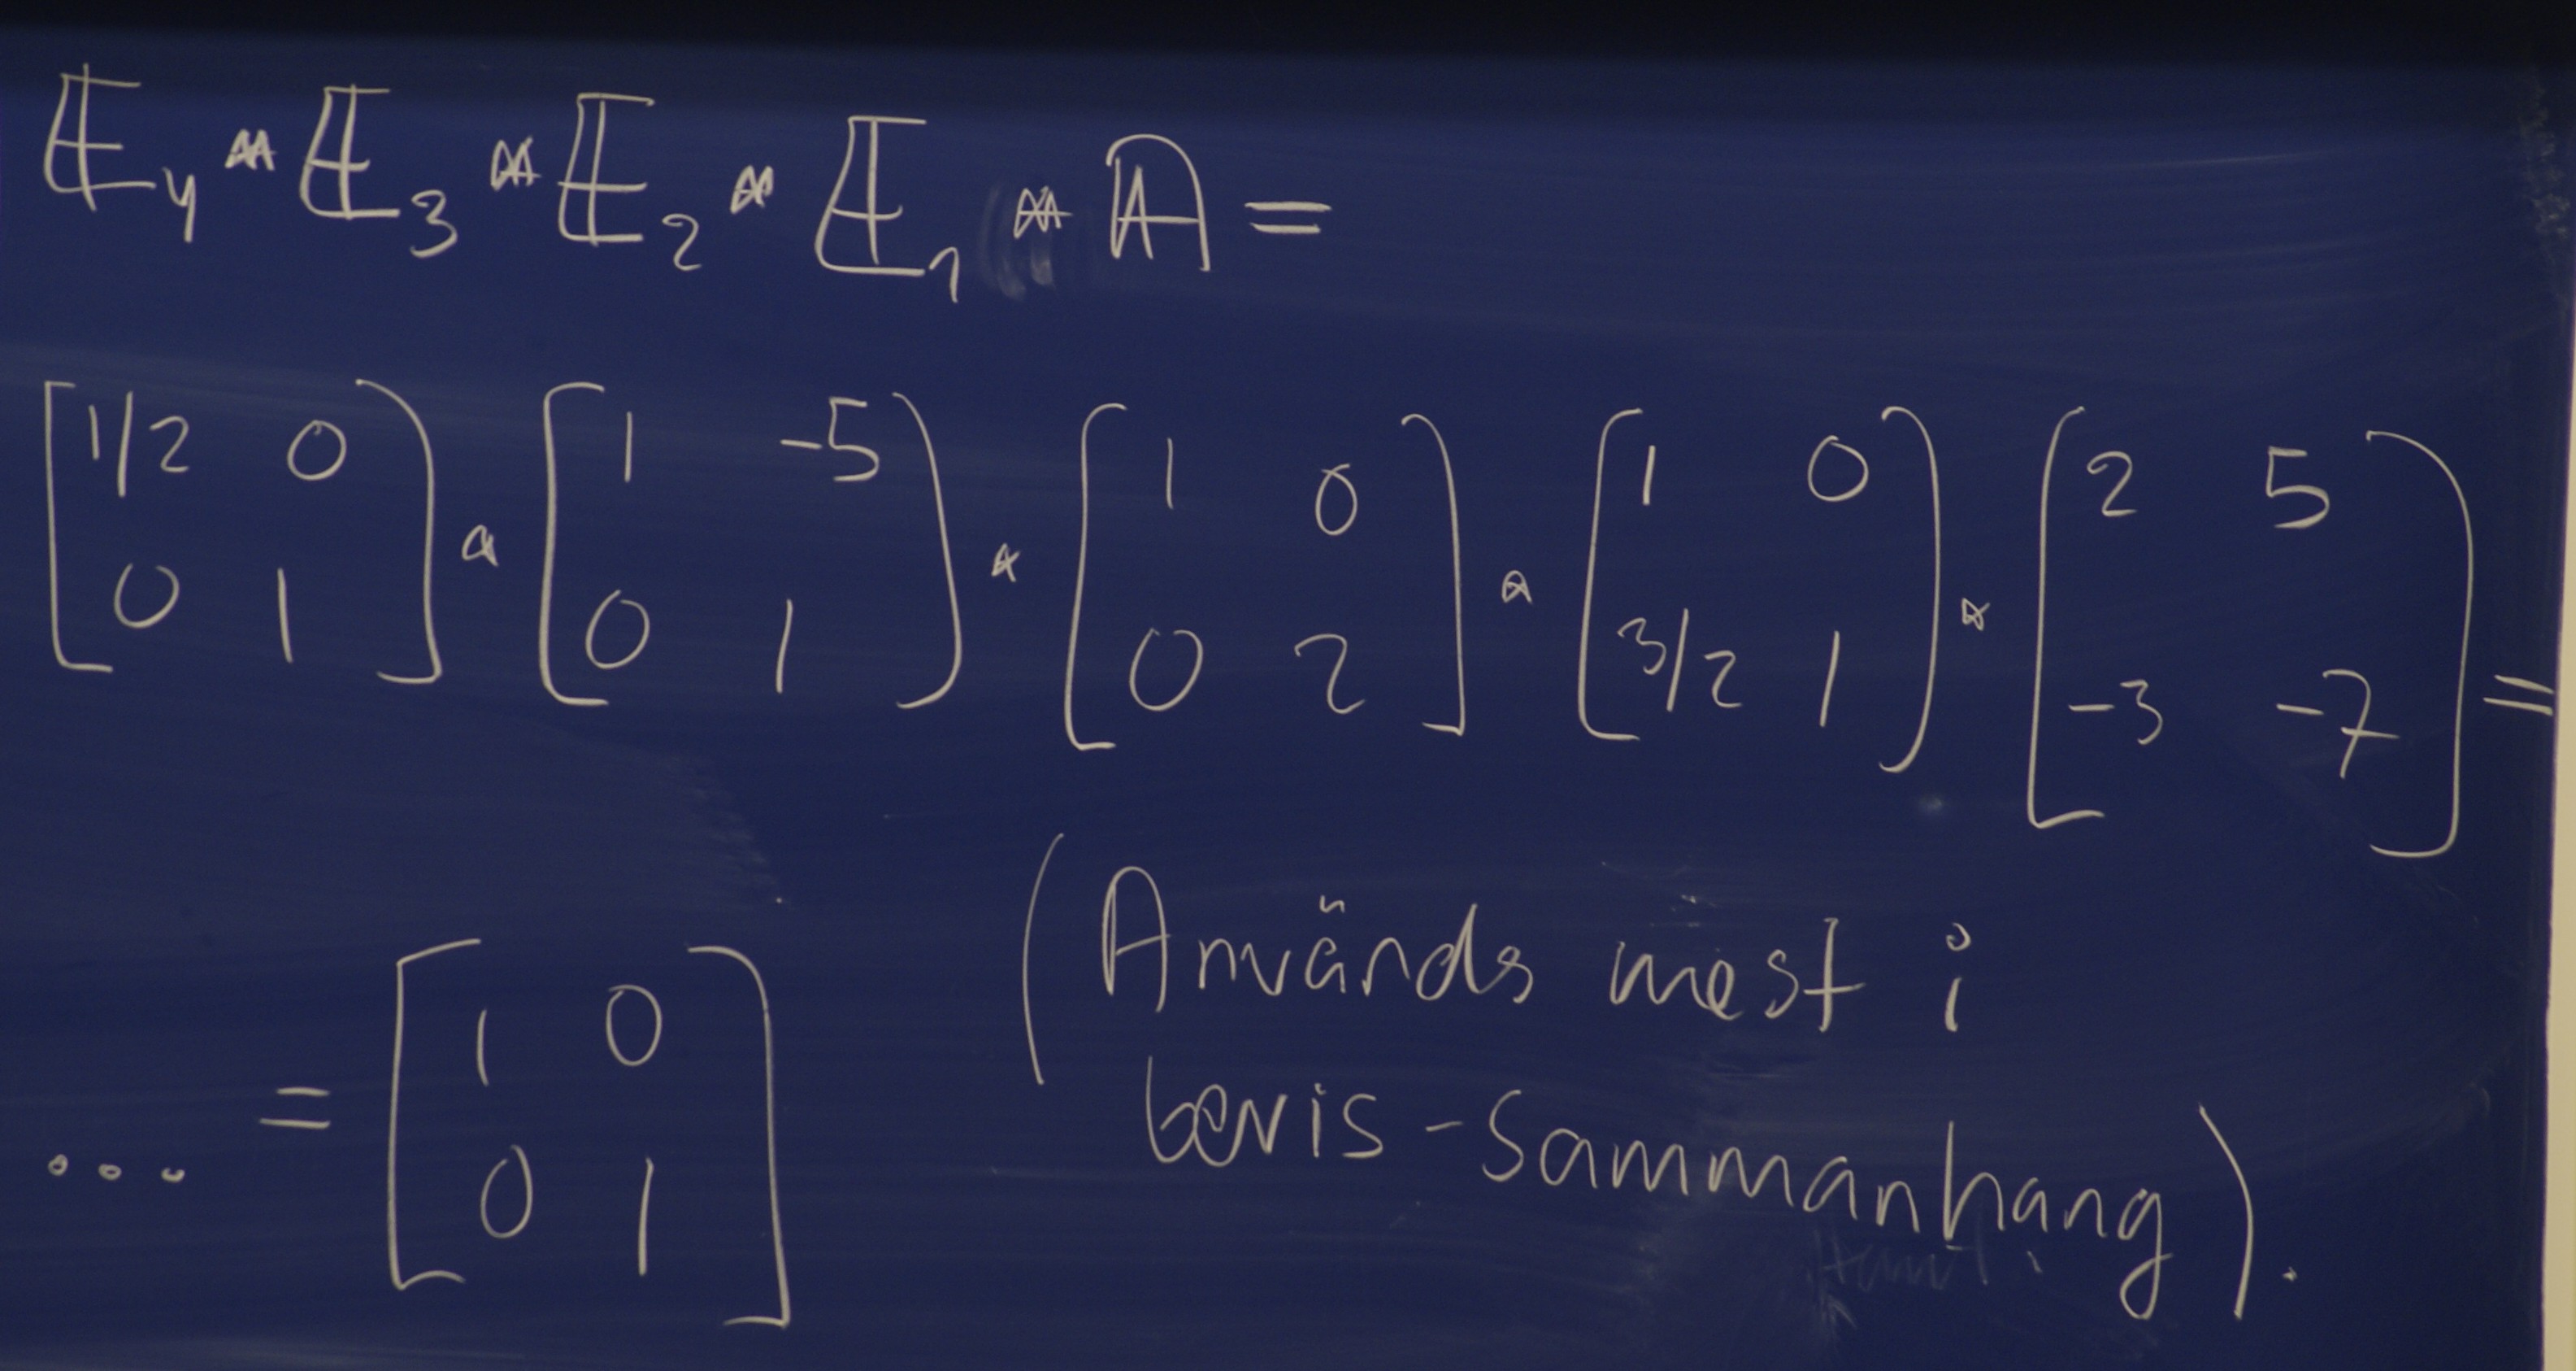 E₄ * E₃ * E₂ * E₁ * A =
[1/2 0; 0 1] * [1 -5; 0 1] * [1 0; 0 2] * [1 0; 3/2 1] * [2 5; -3 -7] =
... = [1 0; 0 1]
(Används mest i
bevis-sammanhang).